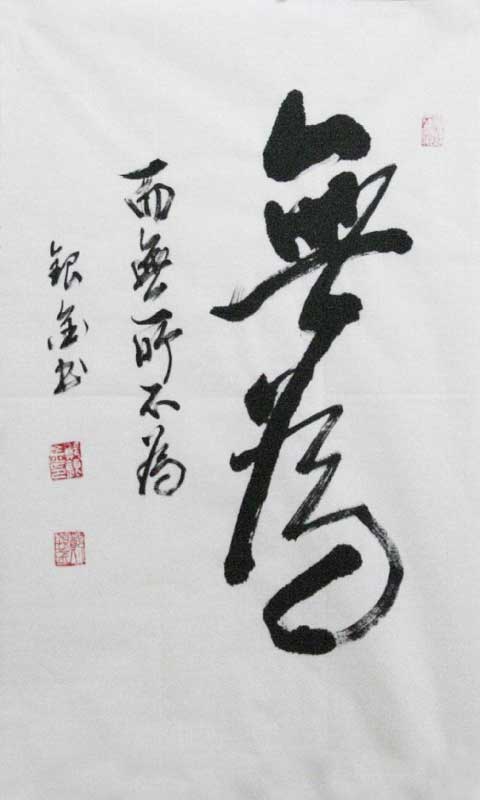 無為
而無所不為
銀金書